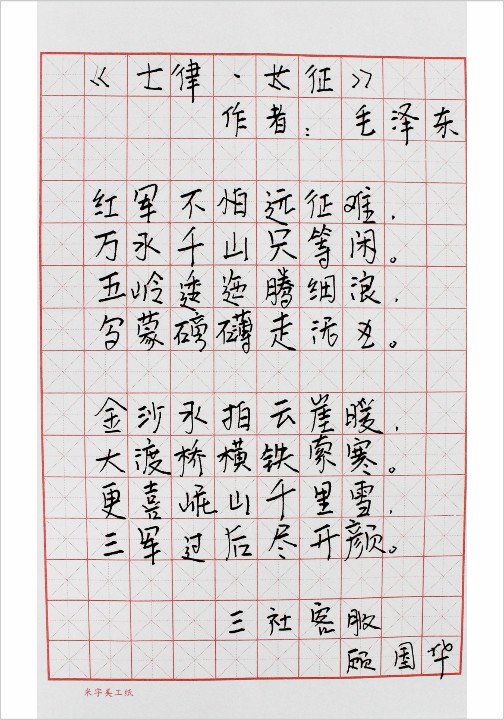 《七律·长征》
作者：毛泽东
红军不怕远征难，
万水千山只等闲。
五岭逶迤腾细浪，
乌蒙磅礴走泥丸。
金沙水拍云崖暖，
大渡桥横铁索寒。
更喜岷山千里雪，
三军过后尽开颜。
三社客服
顾国华
米字美工纸